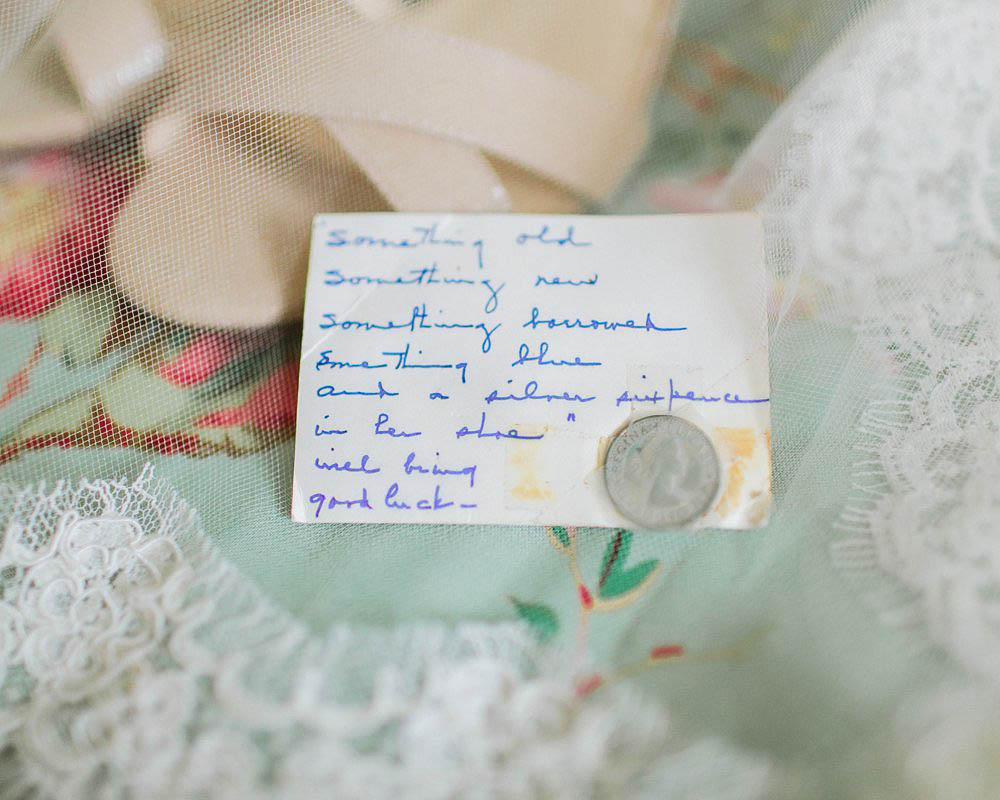 "Something old
something new
something borrowed
Something blue
and a silver sixpence
in her shoe"
will bring
good luck —